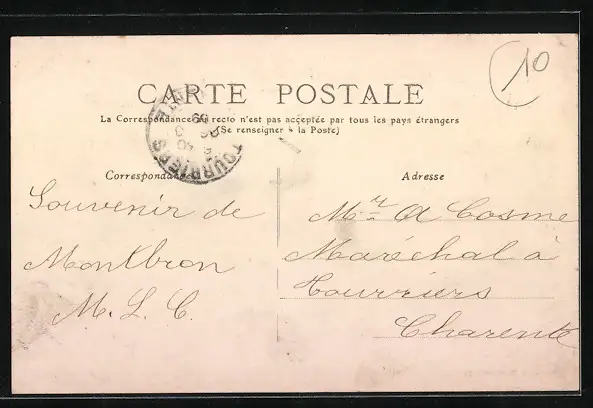 10
CARTE POSTALE
La Correspondance au recto n'est pas acceptée par tous les pays étrangers
(Se renseigner à la Poste)
TOURRIERS
Correspondance
Adresse
Souvenir de
Montbron
M. L. C.
Mr A Cosme
Maréchal à
Tourriers
Charente